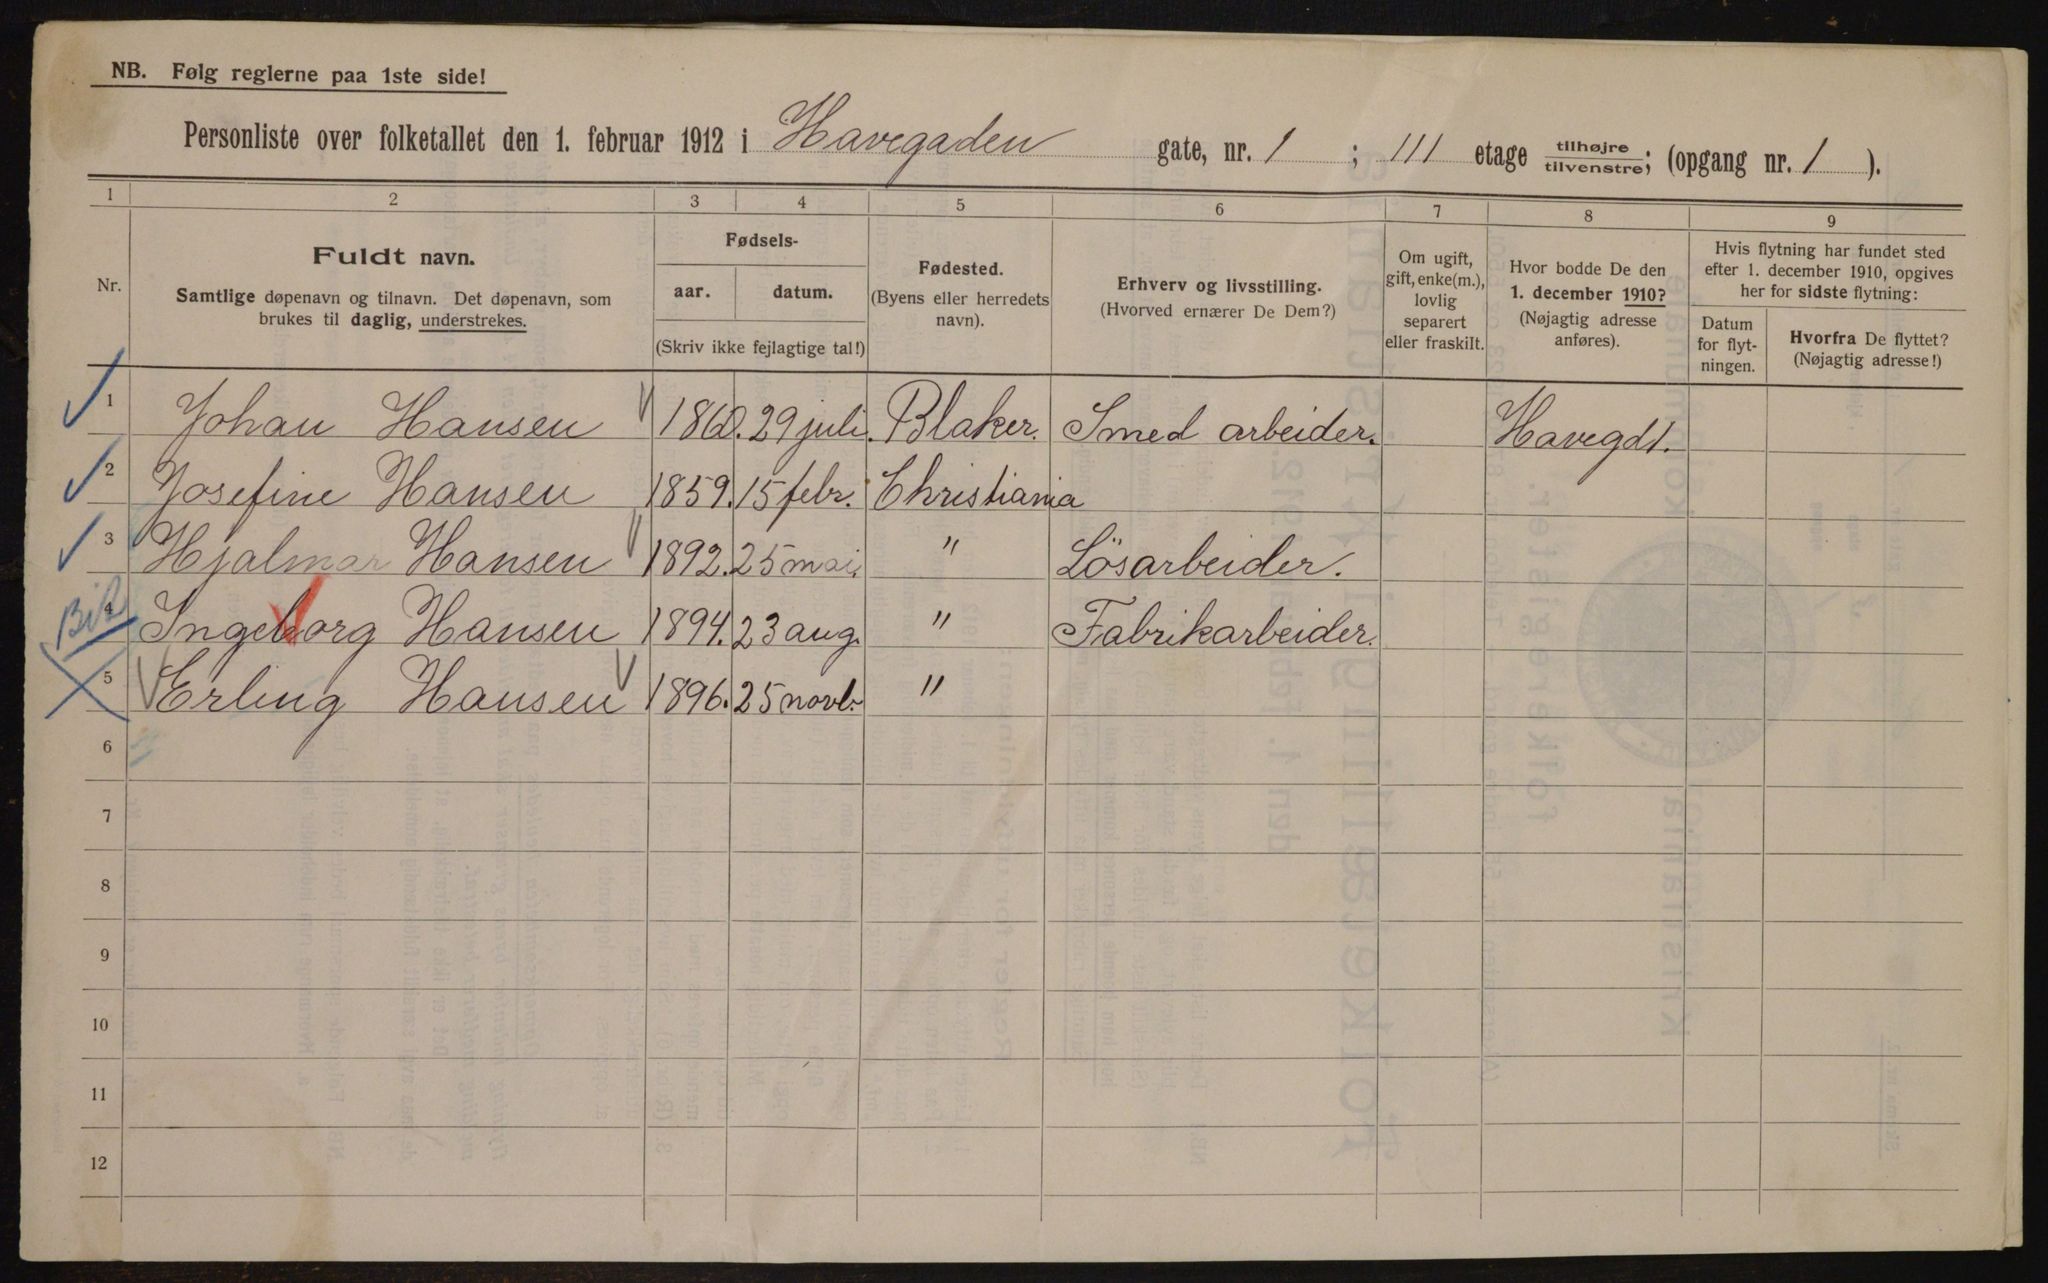 NB. Følg reglerne paa 1ste side!
Personliste over folketallet den 1. februar 1912 i Havegaden gate, nr. 1 ; III etage tilhøjre/tilvenstre; (opgang nr. 1 ).
1 2 3 4 5 6 7 8 9
Nr.
Fuldt navn.
Samtlige døpenavn og tilnavn. Det døpenavn, som
brukes til daglig, understrekes.
Fødsels-
aar. datum.
(Skriv ikke fejlagtige tal!)
Fødested.
(Byens eller herredets
navn).
Erhverv og livsstilling.
(Hvorved ernærer De Dem?)
Om ugift,
gift, enke(m.),
lovlig
separert
eller fraskilt.
Hvor bodde De den
1. december 1910?
(Nøjagtig adresse
anføres).
Hvis flytning har fundet sted
efter 1. december 1910, opgives
her for sidste flytning:
Datum
for flyt-
ningen.
Hvorfra De flyttet?
(Nøjagtig adresse!)
1 Johan Hansen 1860. 29 juli. Blaker. Smed arbeider. Havegd 1.
2 Josefine Hansen 1859. 15 febr. Christiania
3 Hjalmar Hansen 1892. 25 mai. " Lösarbeider.
4 Ingeborg Hansen 1894. 23 aug. " Fabrikarbeider.
5 Erling Hansen 1896. 25 novb. "
6
7
8
9
10
11
12